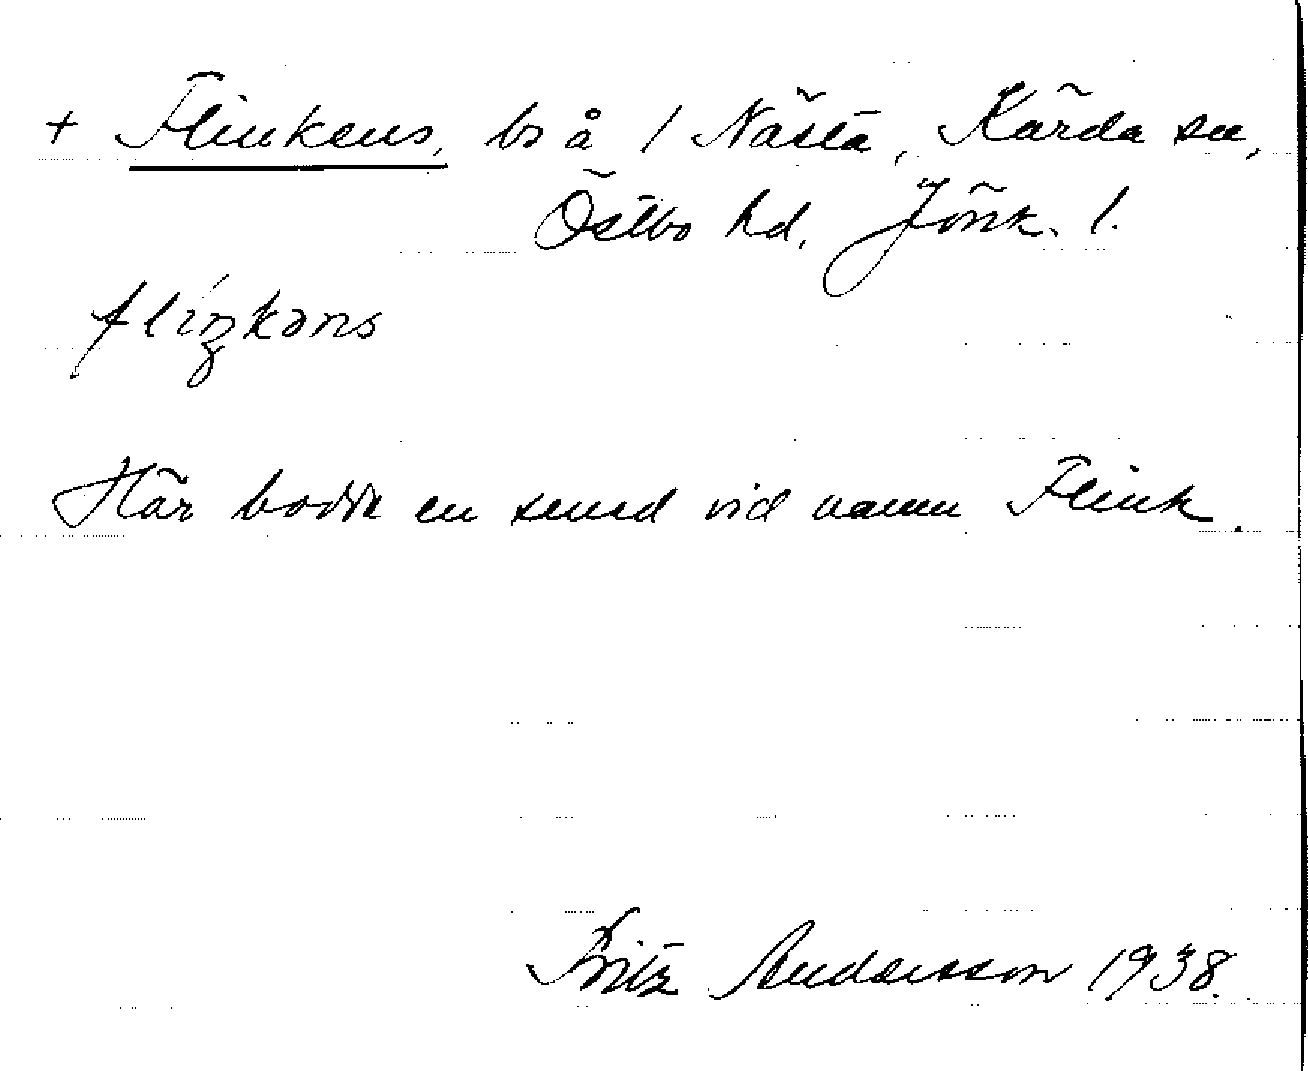 + Flinkens, bs å 1 Nästa, Kärda sn,
Östbo hd, Jönk. l.
fliŋkəns
Här bodde en smed vid namn Flink.
Fritz Andersson 1938.